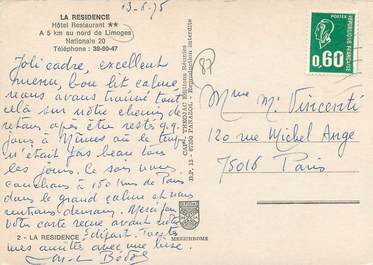 13-6-75
LA RESIDENCE
Hôtel Restaurant ★★
A 5 km au nord de Limoges
Nationale 20
Téléphone : 39-90-47
Joli cadre, excellent
menu, bon lit calme
nous avons trouvé tout
celà sur notre chemin de
retour après être restés q.q.
jours à Nîmes où le temps
n'était pas beau tous
les jours. Ce soir nous
couchons à 150 Kms de Paris
dans le grand calme et nous
rentrons demain. Merci pour
votre carte reçue avant notre
départ. Toutes
mes amitiés avec une bise.
2 - LA RESIDENCE
CAP-THEOJAC Editions Réunies
B.P. 13 - 87350 PANAZOL - Reproduction interdite
MEXICHROME
87
POSTES
REPUBLIQUE FRANÇAISE
0,60
Mme Mr Vincenti
120 rue Michel Ange
75016 Paris